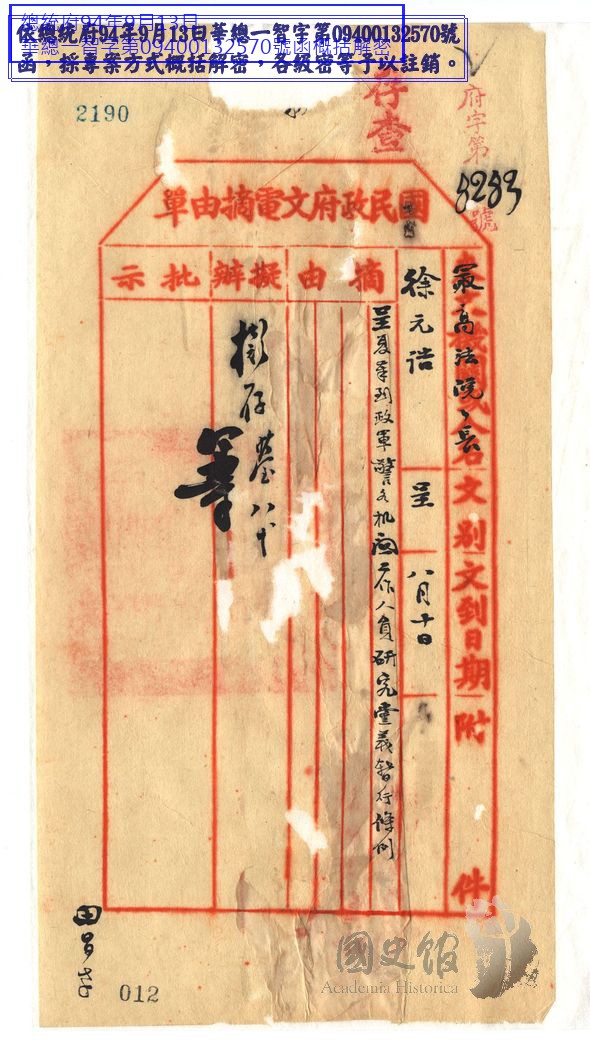 總統府94年9月13日
華總一智字第09400132570號函概括解密
依總統府94年9月13日華總一智字第09400132570號
函，採專案方式概括解密，各級密等予以註銷。
2190
存查
府字第
8283
號
國民政府文電摘由單
文別
文到日期
附
件
最高法院院長
徐元誥
呈
八月十日
摘由
呈复奉到政軍警各机関工作人員研究黨義暫行條例
擬辦
擬存
八十
批示
012
國史館
Academia Historica